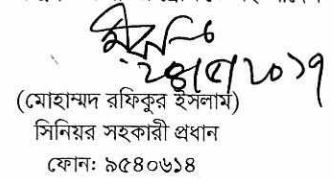 ২৪/৫/২০১৭
(মোহাম্মদ রফিকুর ইসলাম)
সিনিয়র সহকারী প্রধান
ফোন: ৯৫৪০৬১৪